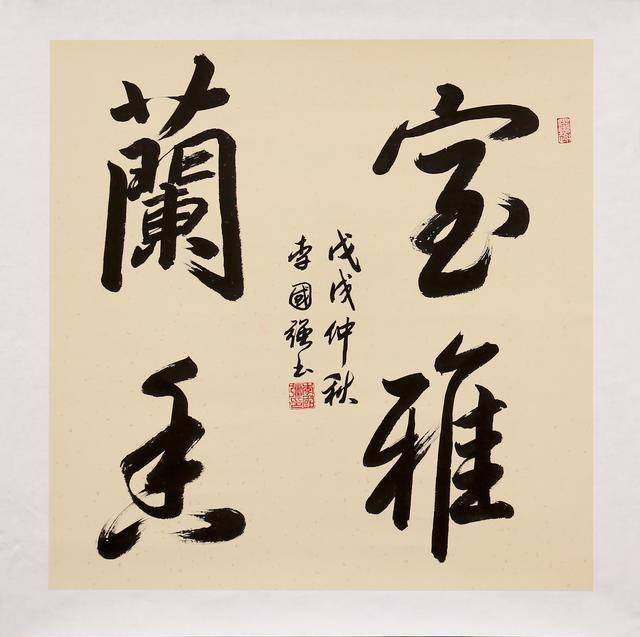 室雅
蘭香
戊戌仲秋
李國強書